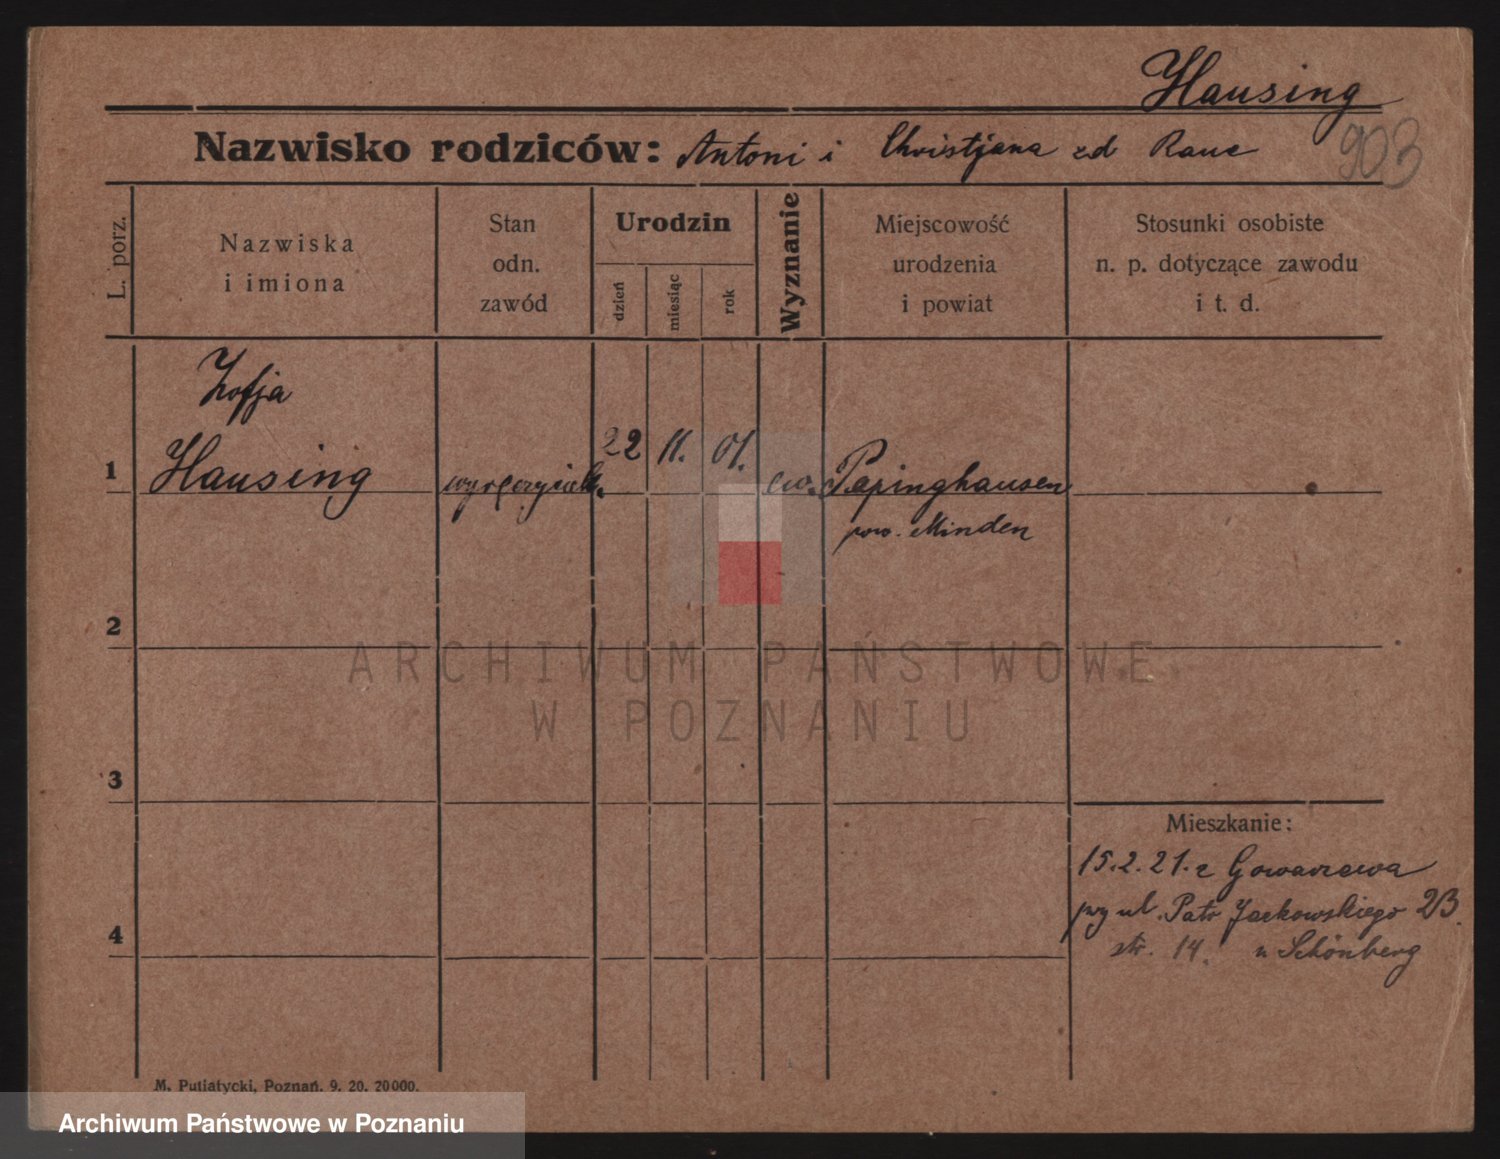 Hausing
903
Nazwisko rodziców: Antoni i Christjana zd Raue
L. porz.
Nazwiska
i imiona
Stan
odn.
zawód
Urodzin
dzień
miesiąc
rok
Wyznanie
Miejscowość
urodzenia
i powiat
Stosunki osobiste
n. p. dotyczące zawodu
i t. d.
Zofja
1 Hausing 22 11. 01. ew. Papinghausen
pow. Minden
2
3
4
Mieszkanie:
15.2.21. z
przy ul. Patr Jackowskiego 23.
str. 14. u Schönberg
M. Putiatycki, Poznań. 9. 20. 20000.
ARCHIWUM PAŃSTWOWE
W POZNANIU
Archiwum Państwowe w Poznaniu